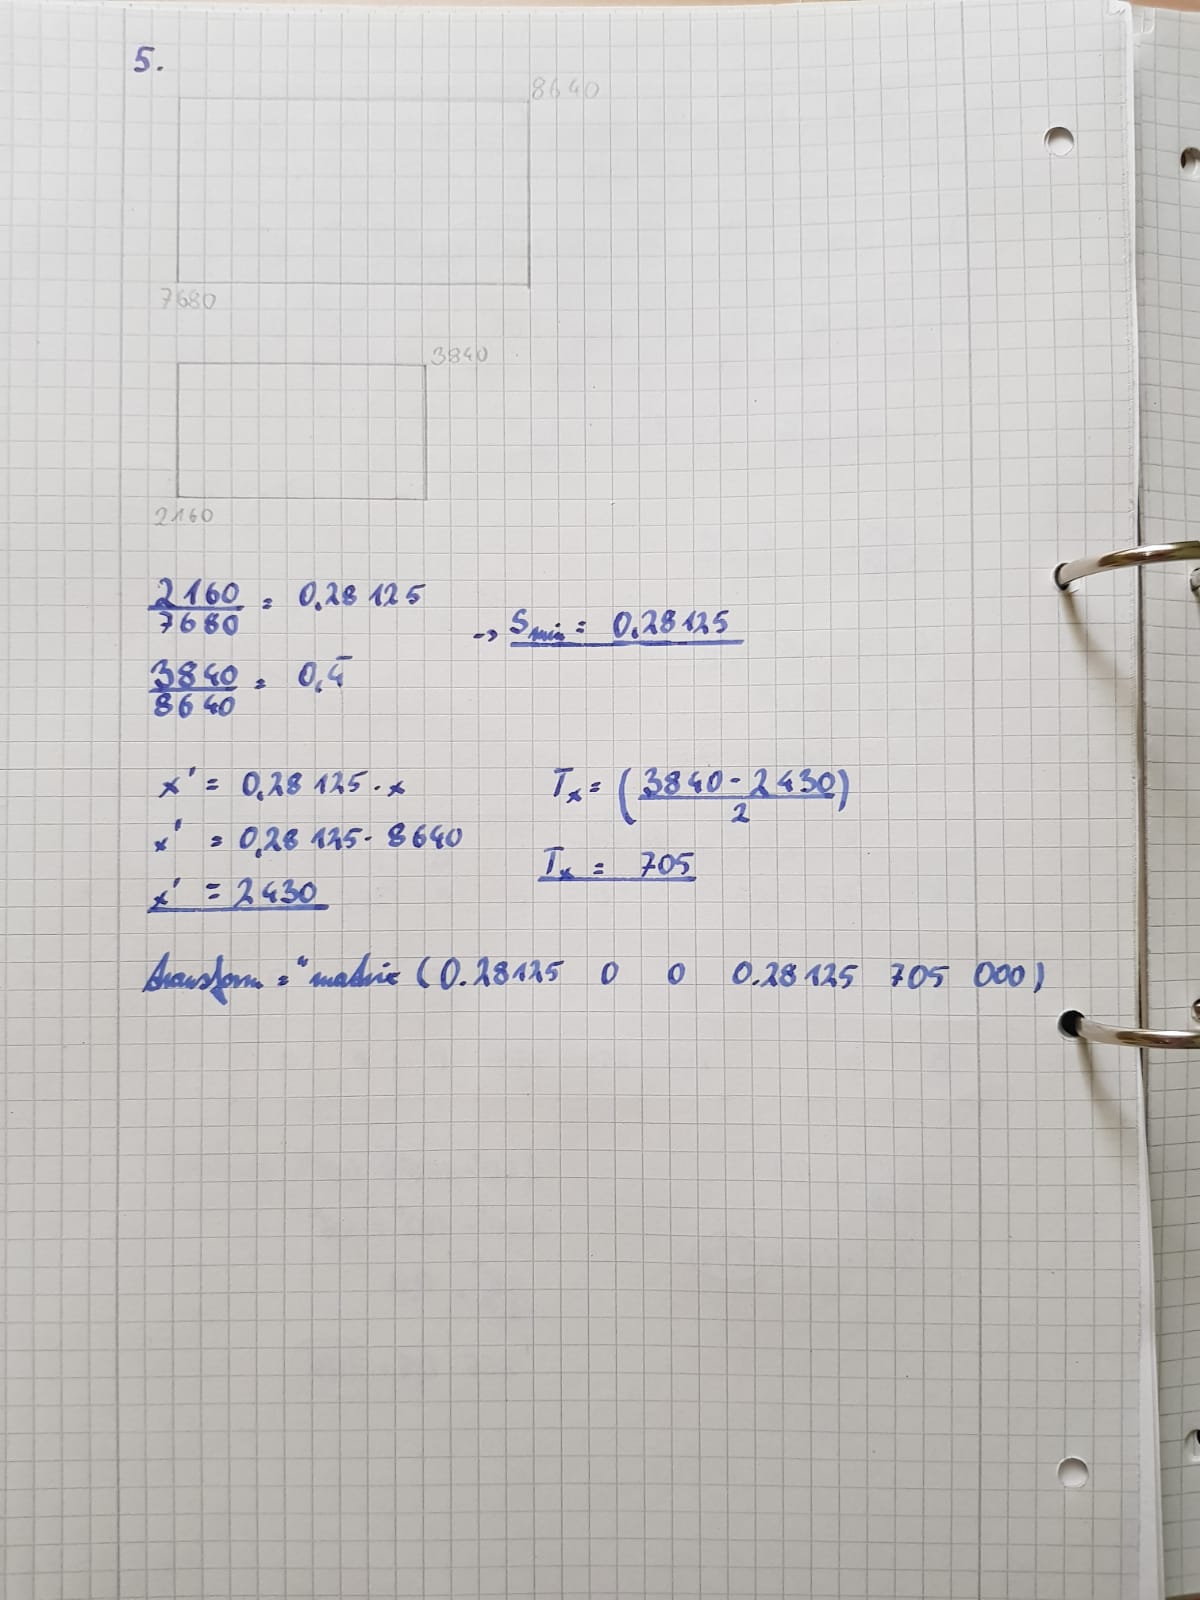 5.
8640
7680
3840
2160
2160/7680 = 0.28125
→ Smin = 0.28125
3840/8640 = 0,4̅
x' = 0,28125 · x
Tx = (3840 - 2430 / 2)
x' = 0,28125 · 8640
Tx = 705
x' = 2430
transform = "matrix (0.28125 0 0 0.28125 705 000)